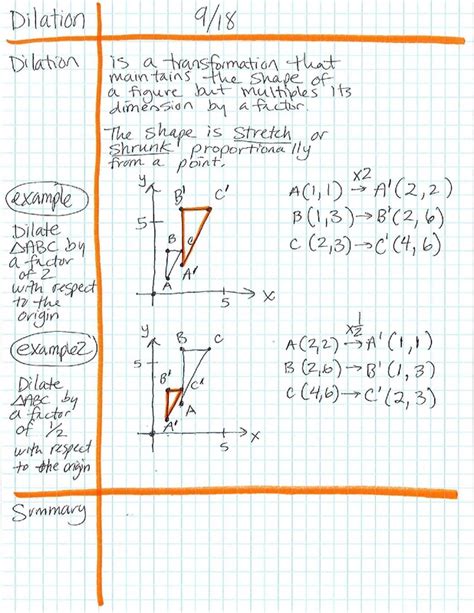 Dilation 9/18
Dilation
is a transformation that
maintains the shape of
a figure but multiples its
dimension by a factor.
The shape is stretch or
shrunk proportionally
from a point.
example
Dilate
△ABC by
a factor
of 2
with respect
to the
origin
y
B' C'
5
B C
A'
A
5 x
x2
A(1,1) → A'(2,2)
B(1,3) → B'(2,6)
C(2,3) → C'(4,6)
example2
Dilate
△ABC by
a factor
of 1/2
with respect
to the origin
y
B C
5
B' C'
A
A'
5 x
x 1/2
A(2,2) → A'(1,1)
B(2,6) → B'(1,3)
C(4,6) → C'(2,3)
Summary